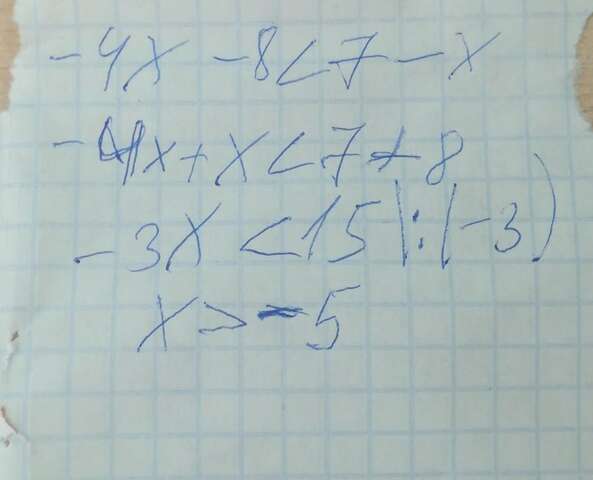 -4x -8<7-x
-4x+x<7+8
-3x <15 |:(-3)
x>-5